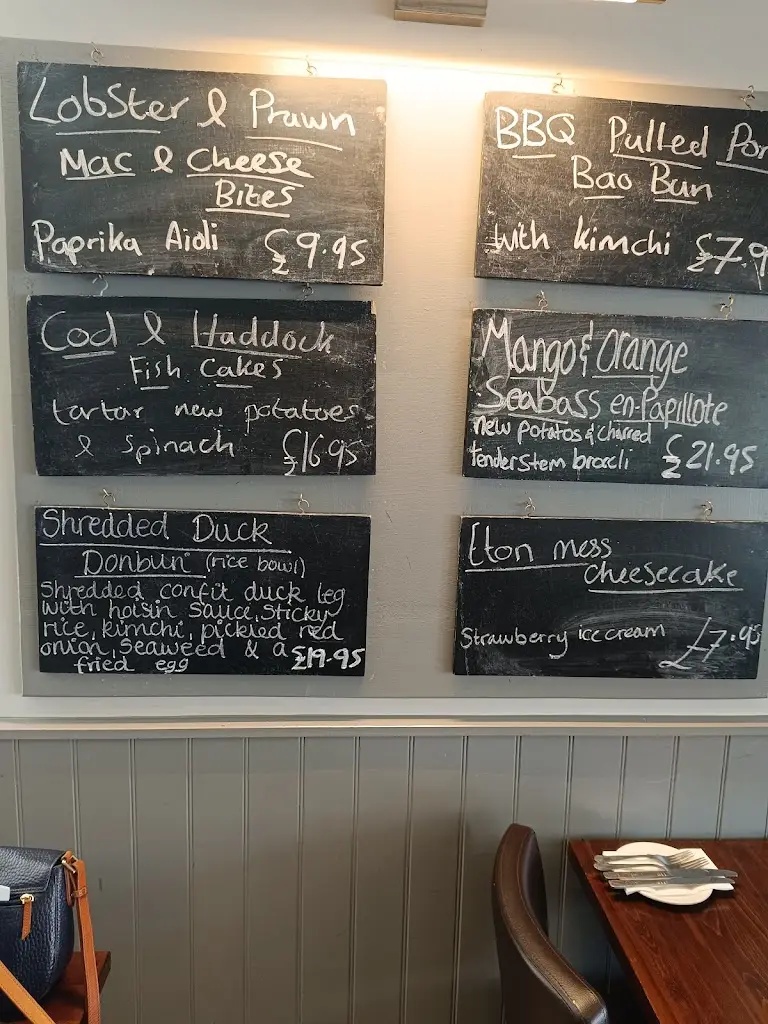 Lobster & Prawn
Mac & Cheese
Bites
Paprika Aioli £9.95
Cod & Haddock
Fish Cakes
tartar new potatoes
& spinach £16.95
Shredded Duck
Donburi (rice bowl)
Shredded confit duck leg
with hoisin sauce, sticky
rice, kimchi, pickled red
onion, seaweed & a £19.95
fried egg
BBQ Pulled Por
Bao Bun
with kimchi £7.9
Mango & Orange
Seabass en-Papillote
new potatos & charred
tenderstem brocli £21.95
Eton mess
cheesecake
Strawberry ice cream £7.95